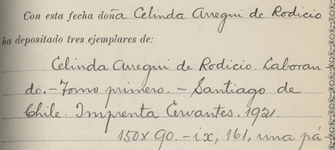 Con esta fecha doña Celinda Arregui de Rodicio
ha depositado tres ejemplares de:
Celinda Arregui de Rodicio. Laboran-
do.-Tomo primero.-Santiago de
Chile. Imprenta Cervantes. 1921.
150 x 90.-ix, 161, una pá-